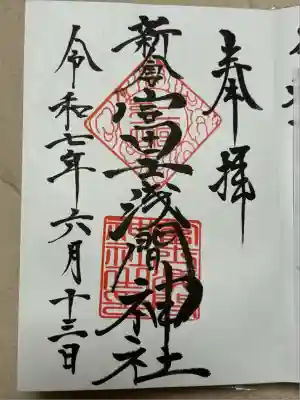 奉拝
新倉富士浅間神社
令和七年六月十三日